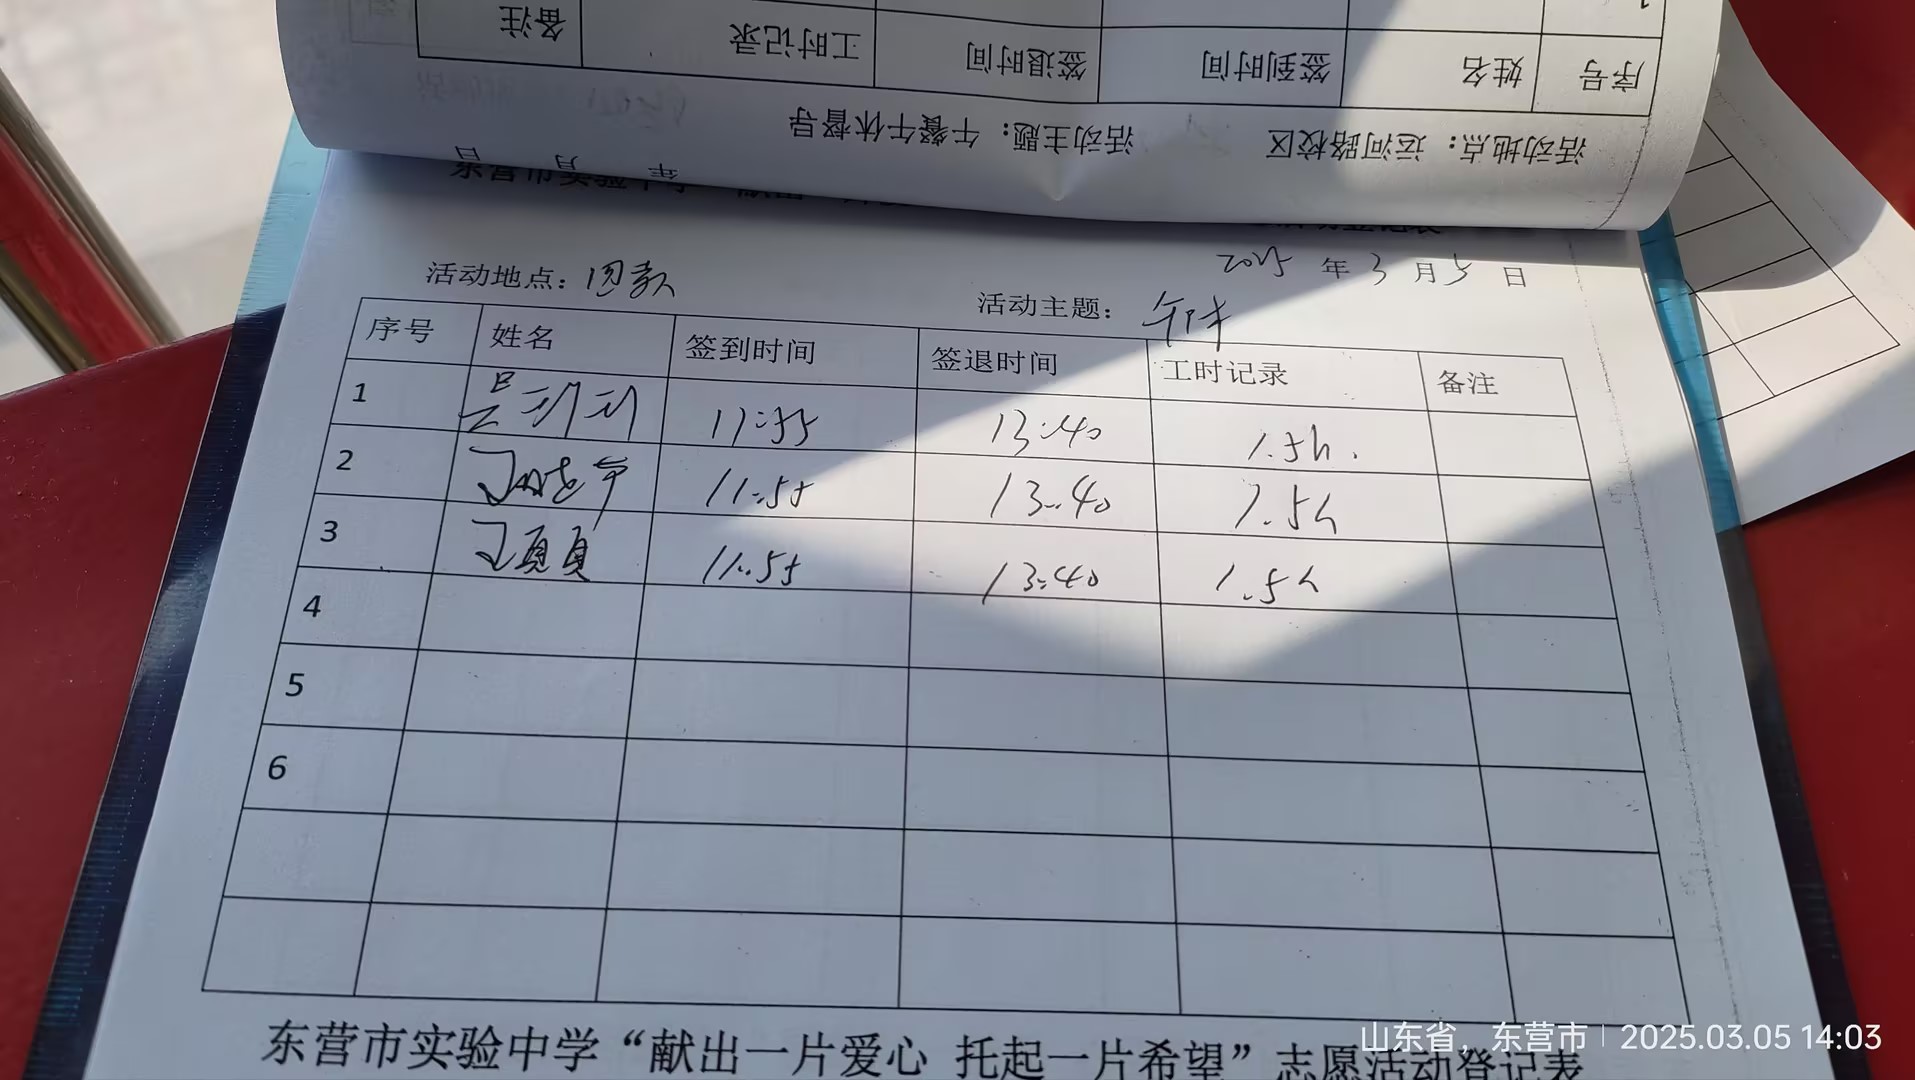 备注 工时记录 签退时间 签到时间 姓名 序号
活动主题：午餐午休督导 活动地点：运河路校区
年 月 日
东营市实验中学
2025 年 3 月 5 日
活动地点：
活动主题：
序号 姓名 签到时间 签退时间 工时记录 备注
1 11:55 13:40 1.5h.
2 11:55 13:40 1.5h
3 王贞贞 11:55 13:40 1.5h
4
5
6
东营市实验中学“献出一片爱心 托起一片希望”志愿活动登记表
山东省，东营市 | 2025.03.05 14:03